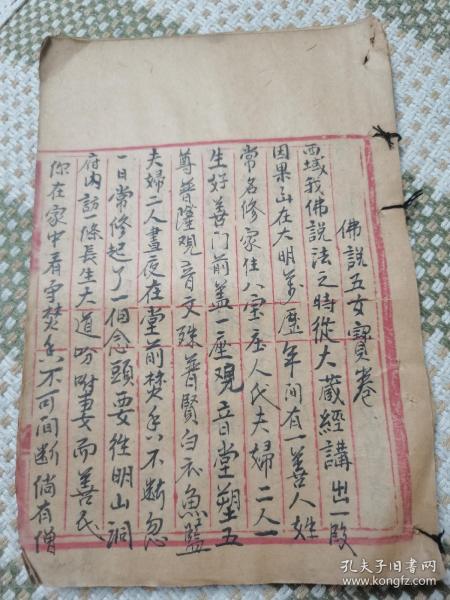 佛說五女寶卷
西域我佛說法之時從大藏經講出一段
因果在大明萬歷年間有一善人姓
常名修家住八宝庄人氏夫婦二人一
生好善门前盖一座觀音堂塑五
尊普陸观音文殊普賢白衣魚藍
夫婦二人晝夜在堂前焚香不断忽
一日常修起了一個念頭要往明山洞
府内訪一條長生大道吩咐妻而善氏
你在家中看守焚香不可间断倘有僧
孔夫子旧书网
www.kongfz.com